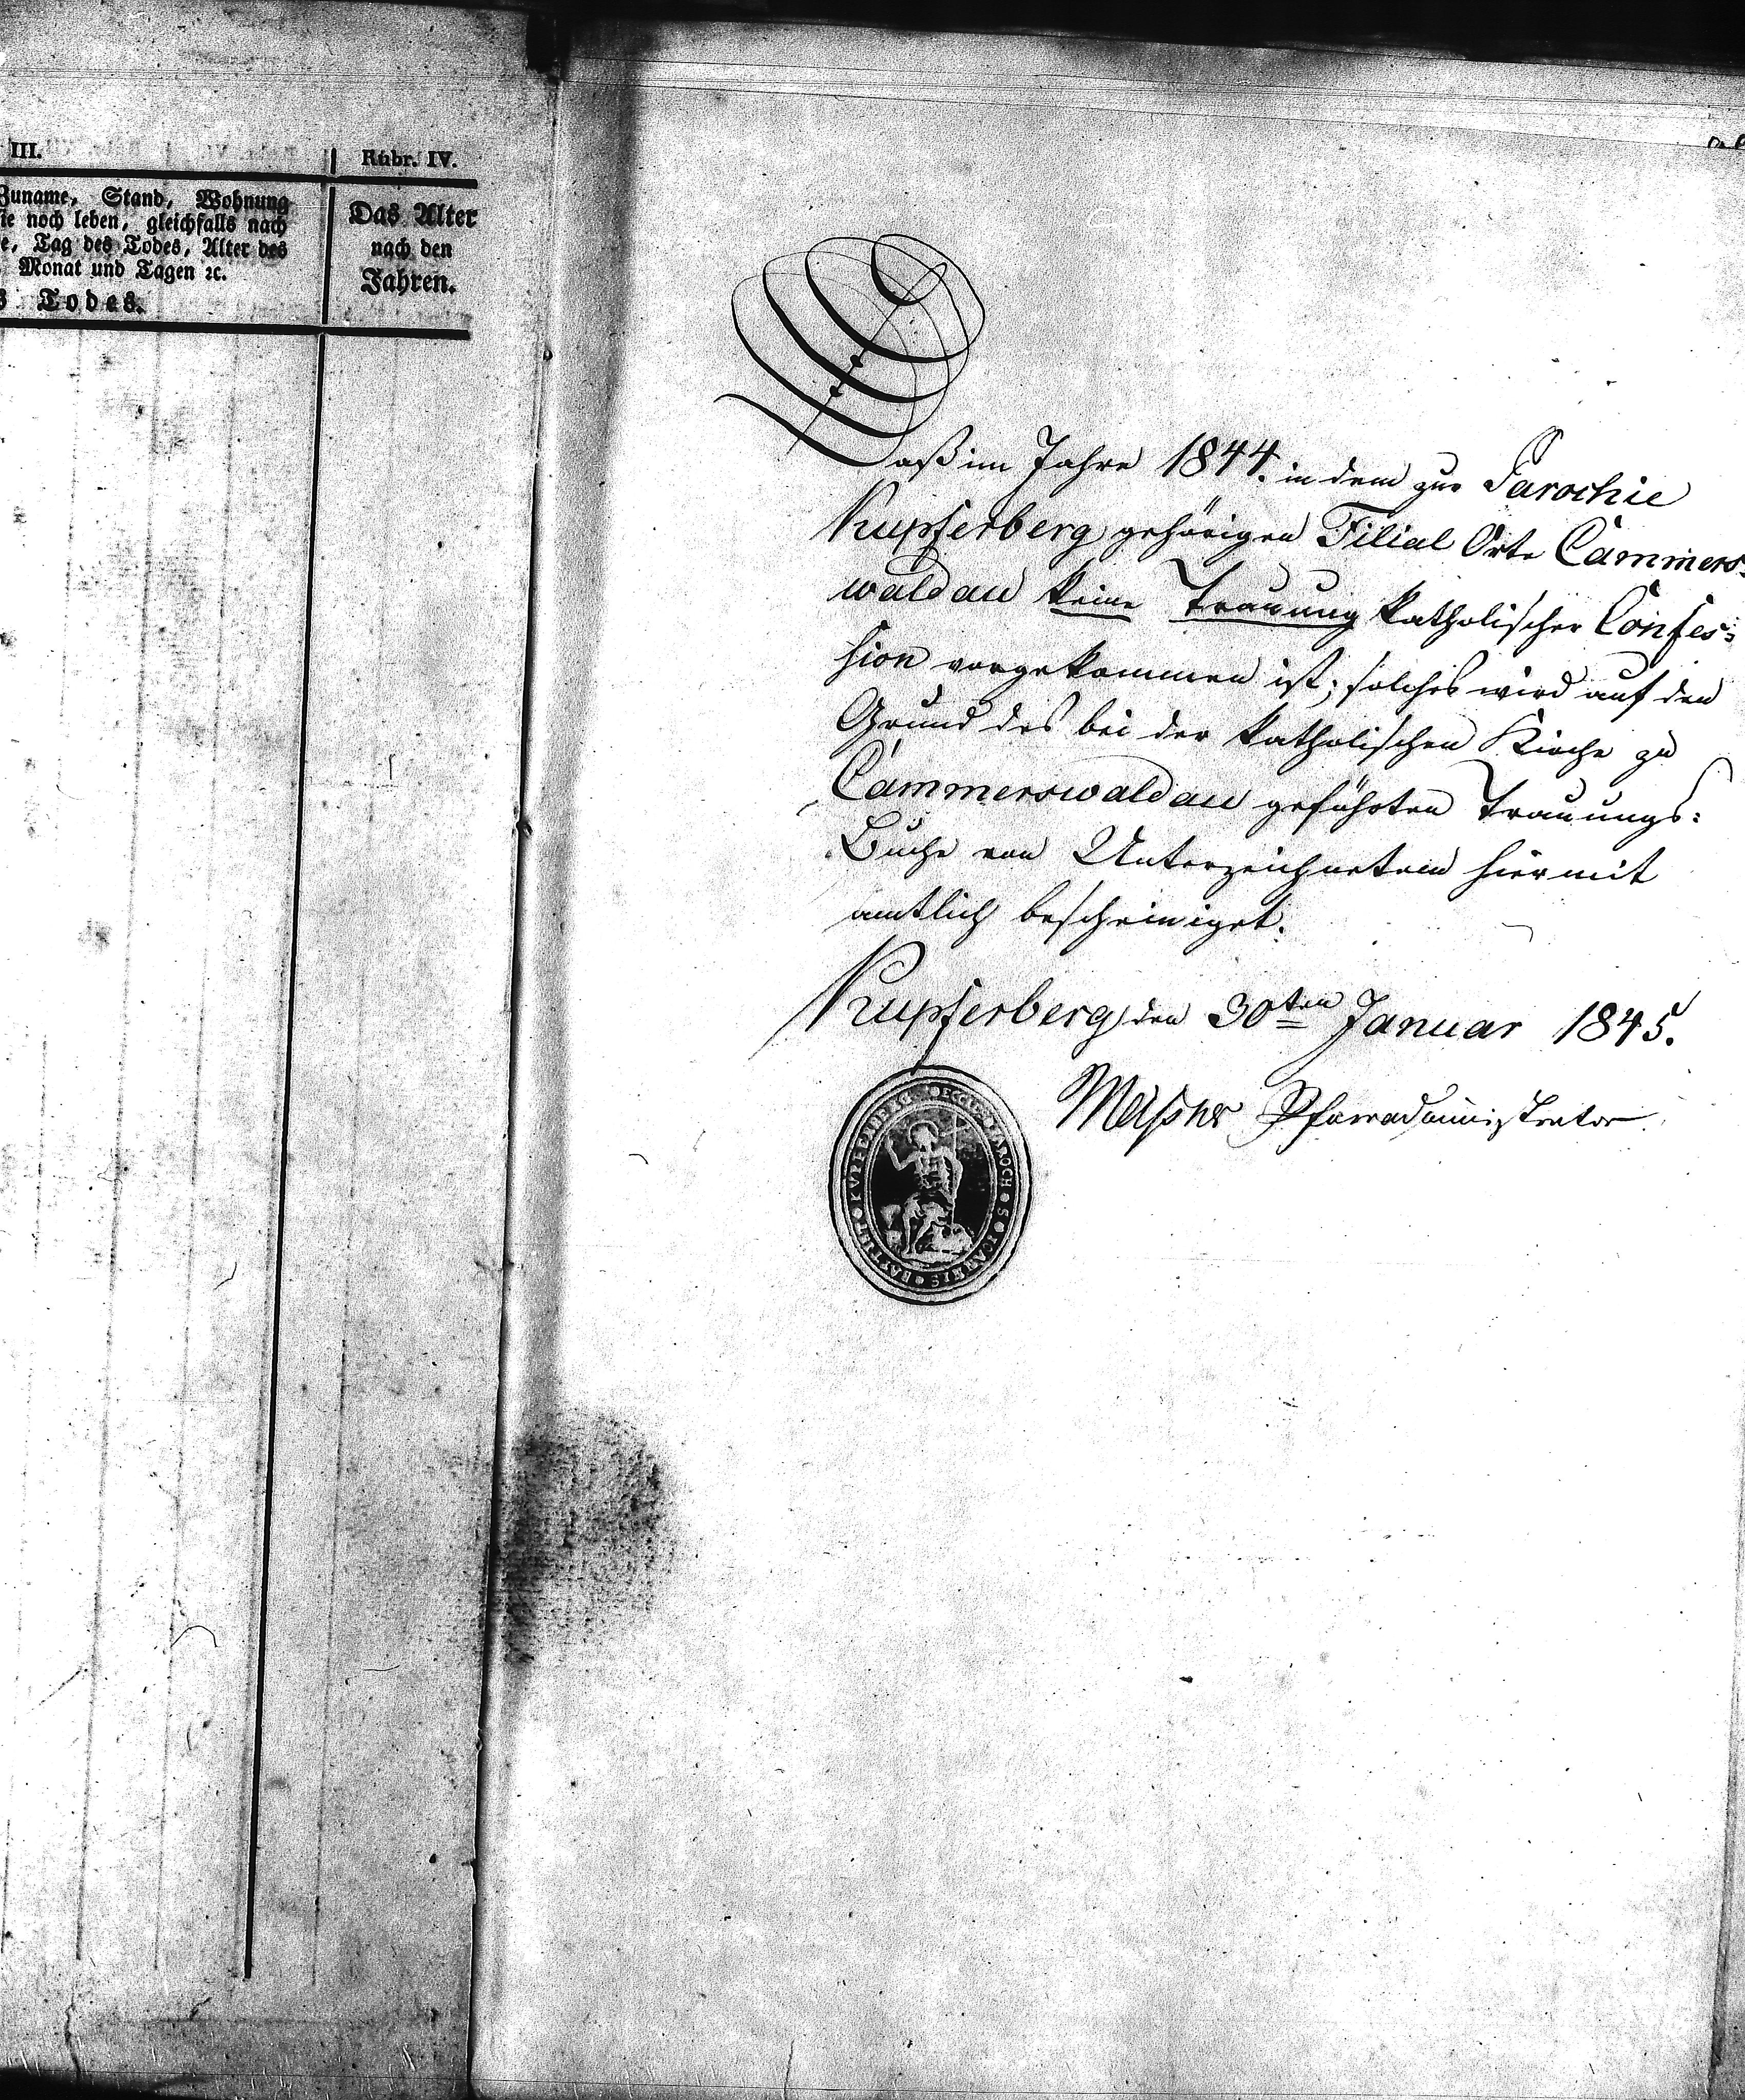 III.
Rubr. IV.
Zuname, Stand, Wohnung
sie noch leben, gleichfalls nach
e, Tag des Todes, Alter des
Monat und Tagen ꝛc.
s Todes.
Das Alter
nach den
Jahren.
Daß im Jahre 1844. in dem zur Parochie
Kupferberg gehörigen Filial Orte Cammers-
waldau keine Trauung katholischer Confes-
sion vorgekommen ist; solches wird auf den
Grund des bei der katholischen Kirche zu
Cammerswaldau geführten Trauungs-
Buche von Unterzeichnetem hiermit
amtlich bescheiniget.
Kupferberg den 30ten Januar 1845.
Pfarradministrator.
PAROCH • S • IOANNIS • BAPTIST •